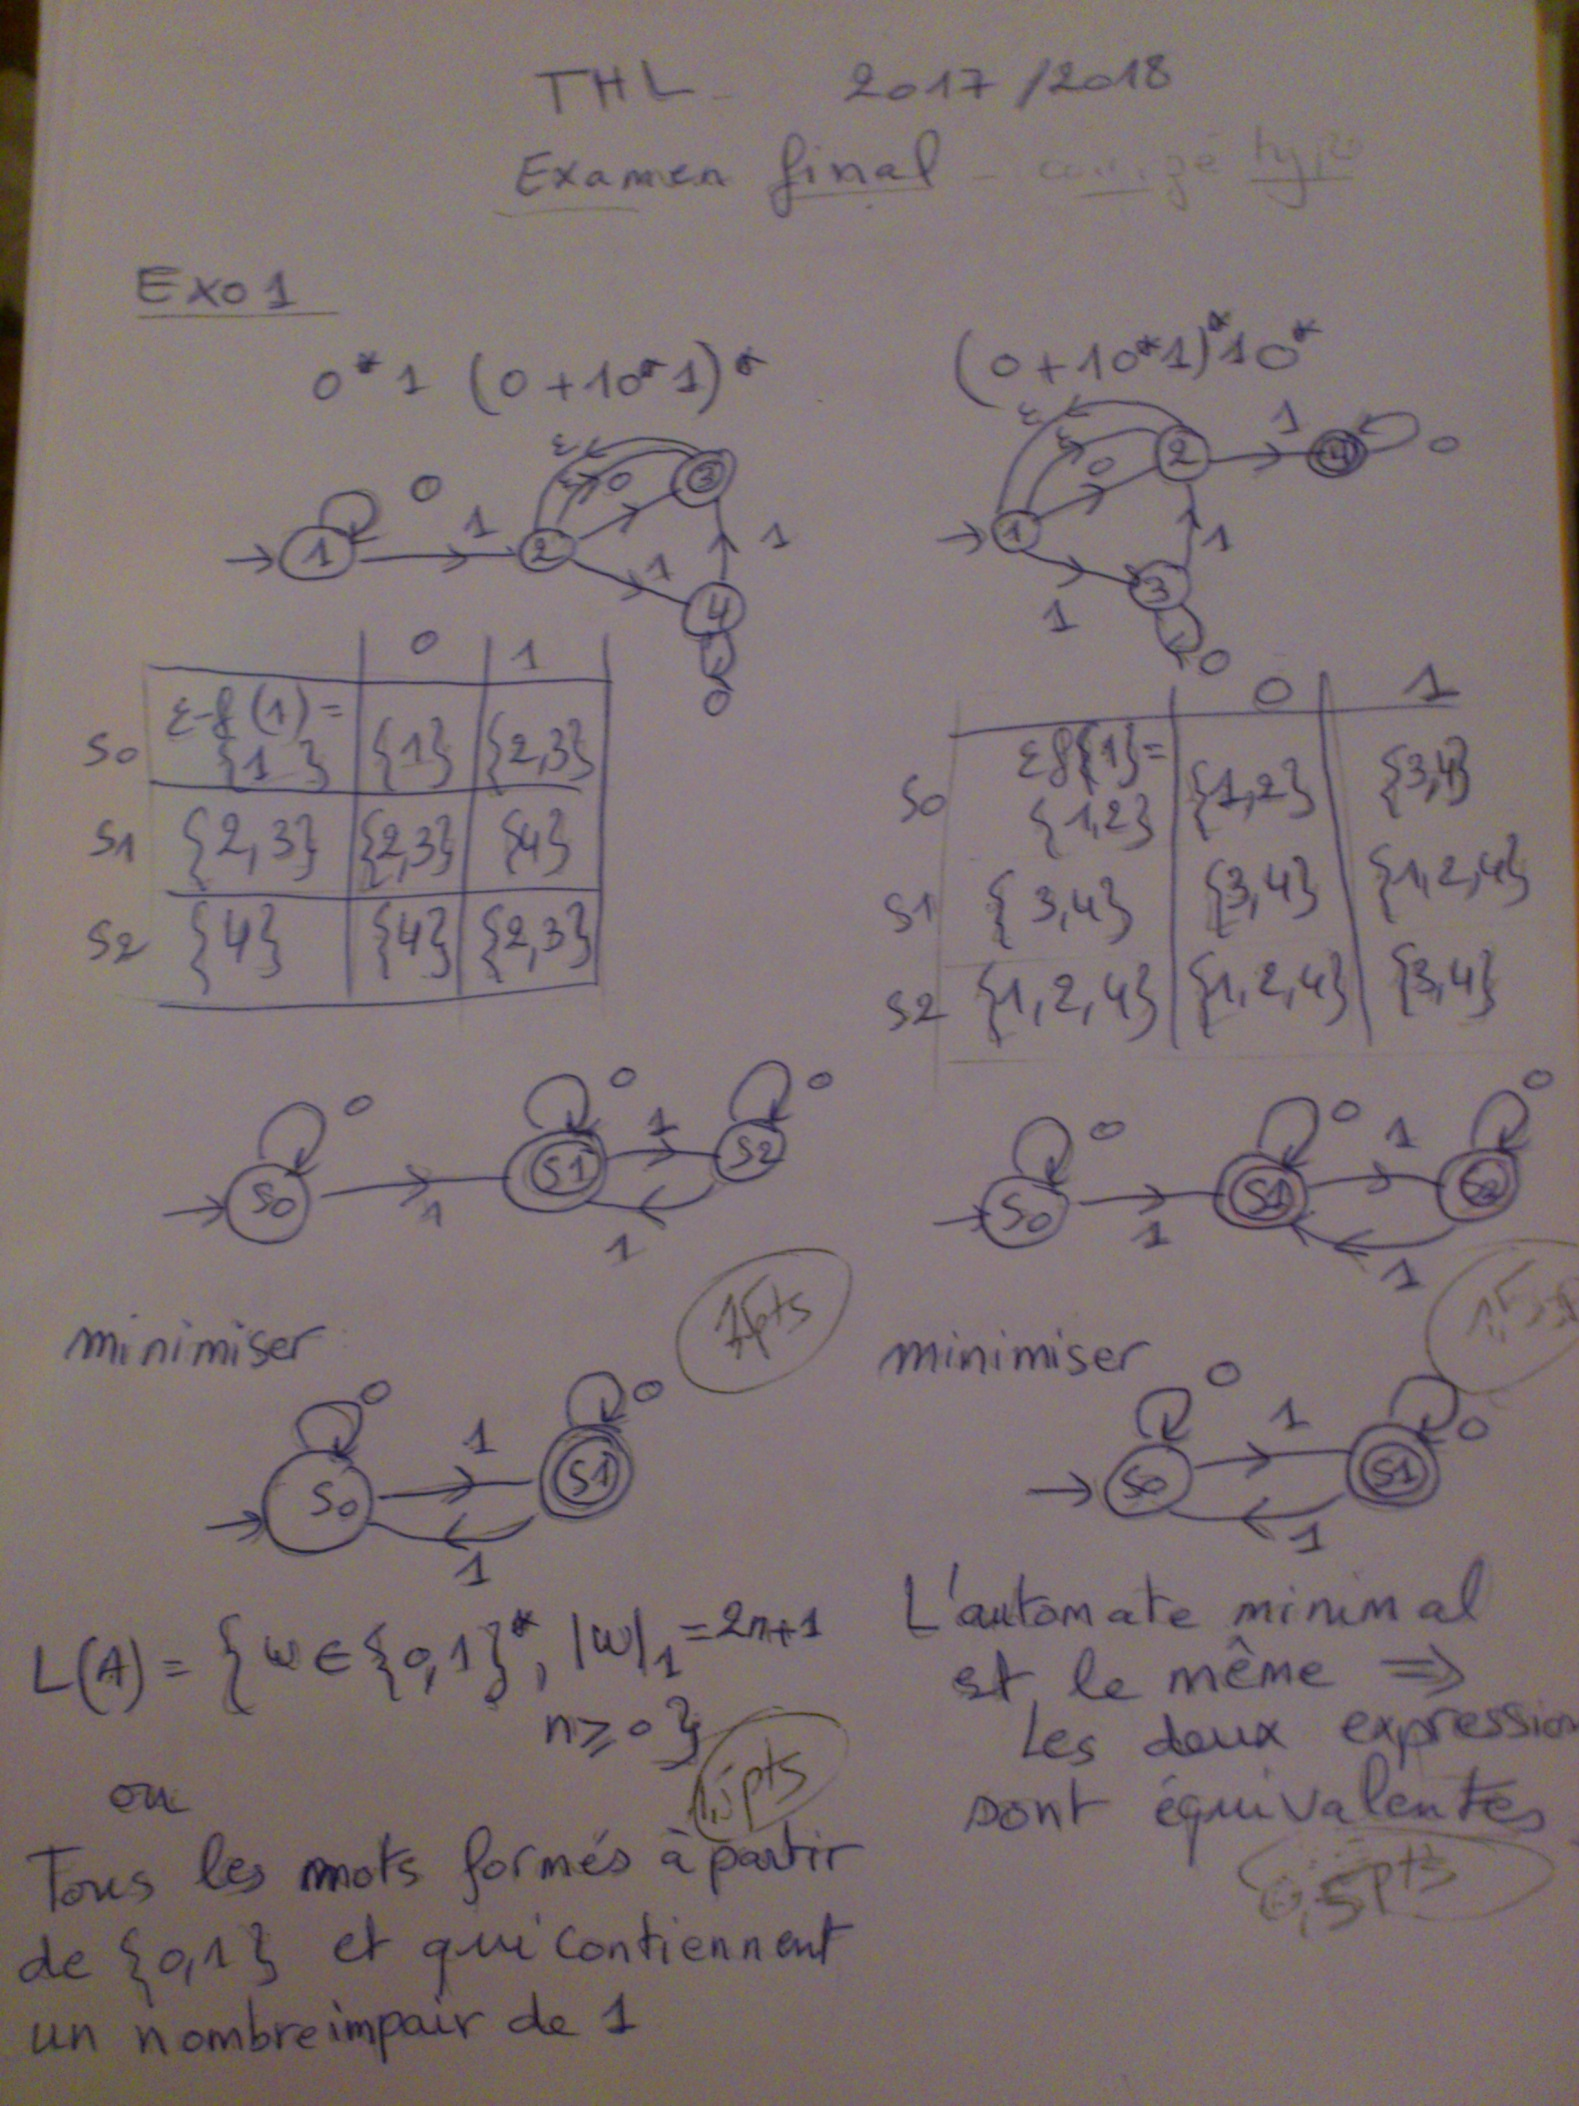 THL 2017/2018
Examen final - corrigé type
Exo 1
0*1 (0+10*1)*
ε ε 0 3
0 1 1 2 1 4 1 0
0 1
S0 ε-f(1)= {1} {1} {2,3}
S1 {2,3} {2,3} {4}
S2 {4} {4} {2,3}
0 0 1 0
S0 1 S1 S2
1
1pts
minimiser
0 1 0
S0 S1
1
L(A) = { w ∈ {0,1}*, |w|₁ = 2n+1
n ≥ 0 }
1,5pts
ou
Tous les mots formés à partir
de {0,1} et qui contiennent
un nombre impair de 1
(0+10*1)*10*
ε ε 0 2 1 4 0
1 1 3 1 0
0 1
S0 εf{1}= {1,2} {1,2} {3,4}
S1 {3,4} {3,4} {1,2,4}
S2 {1,2,4} {1,2,4} {3,4}
0 0 1 0
S0 1 S1 S2
1
minimiser
0 1 0
S0 S1
1
L'automate minimal
est le même ⇒
les deux expression
sont équivalentes
0,5pts